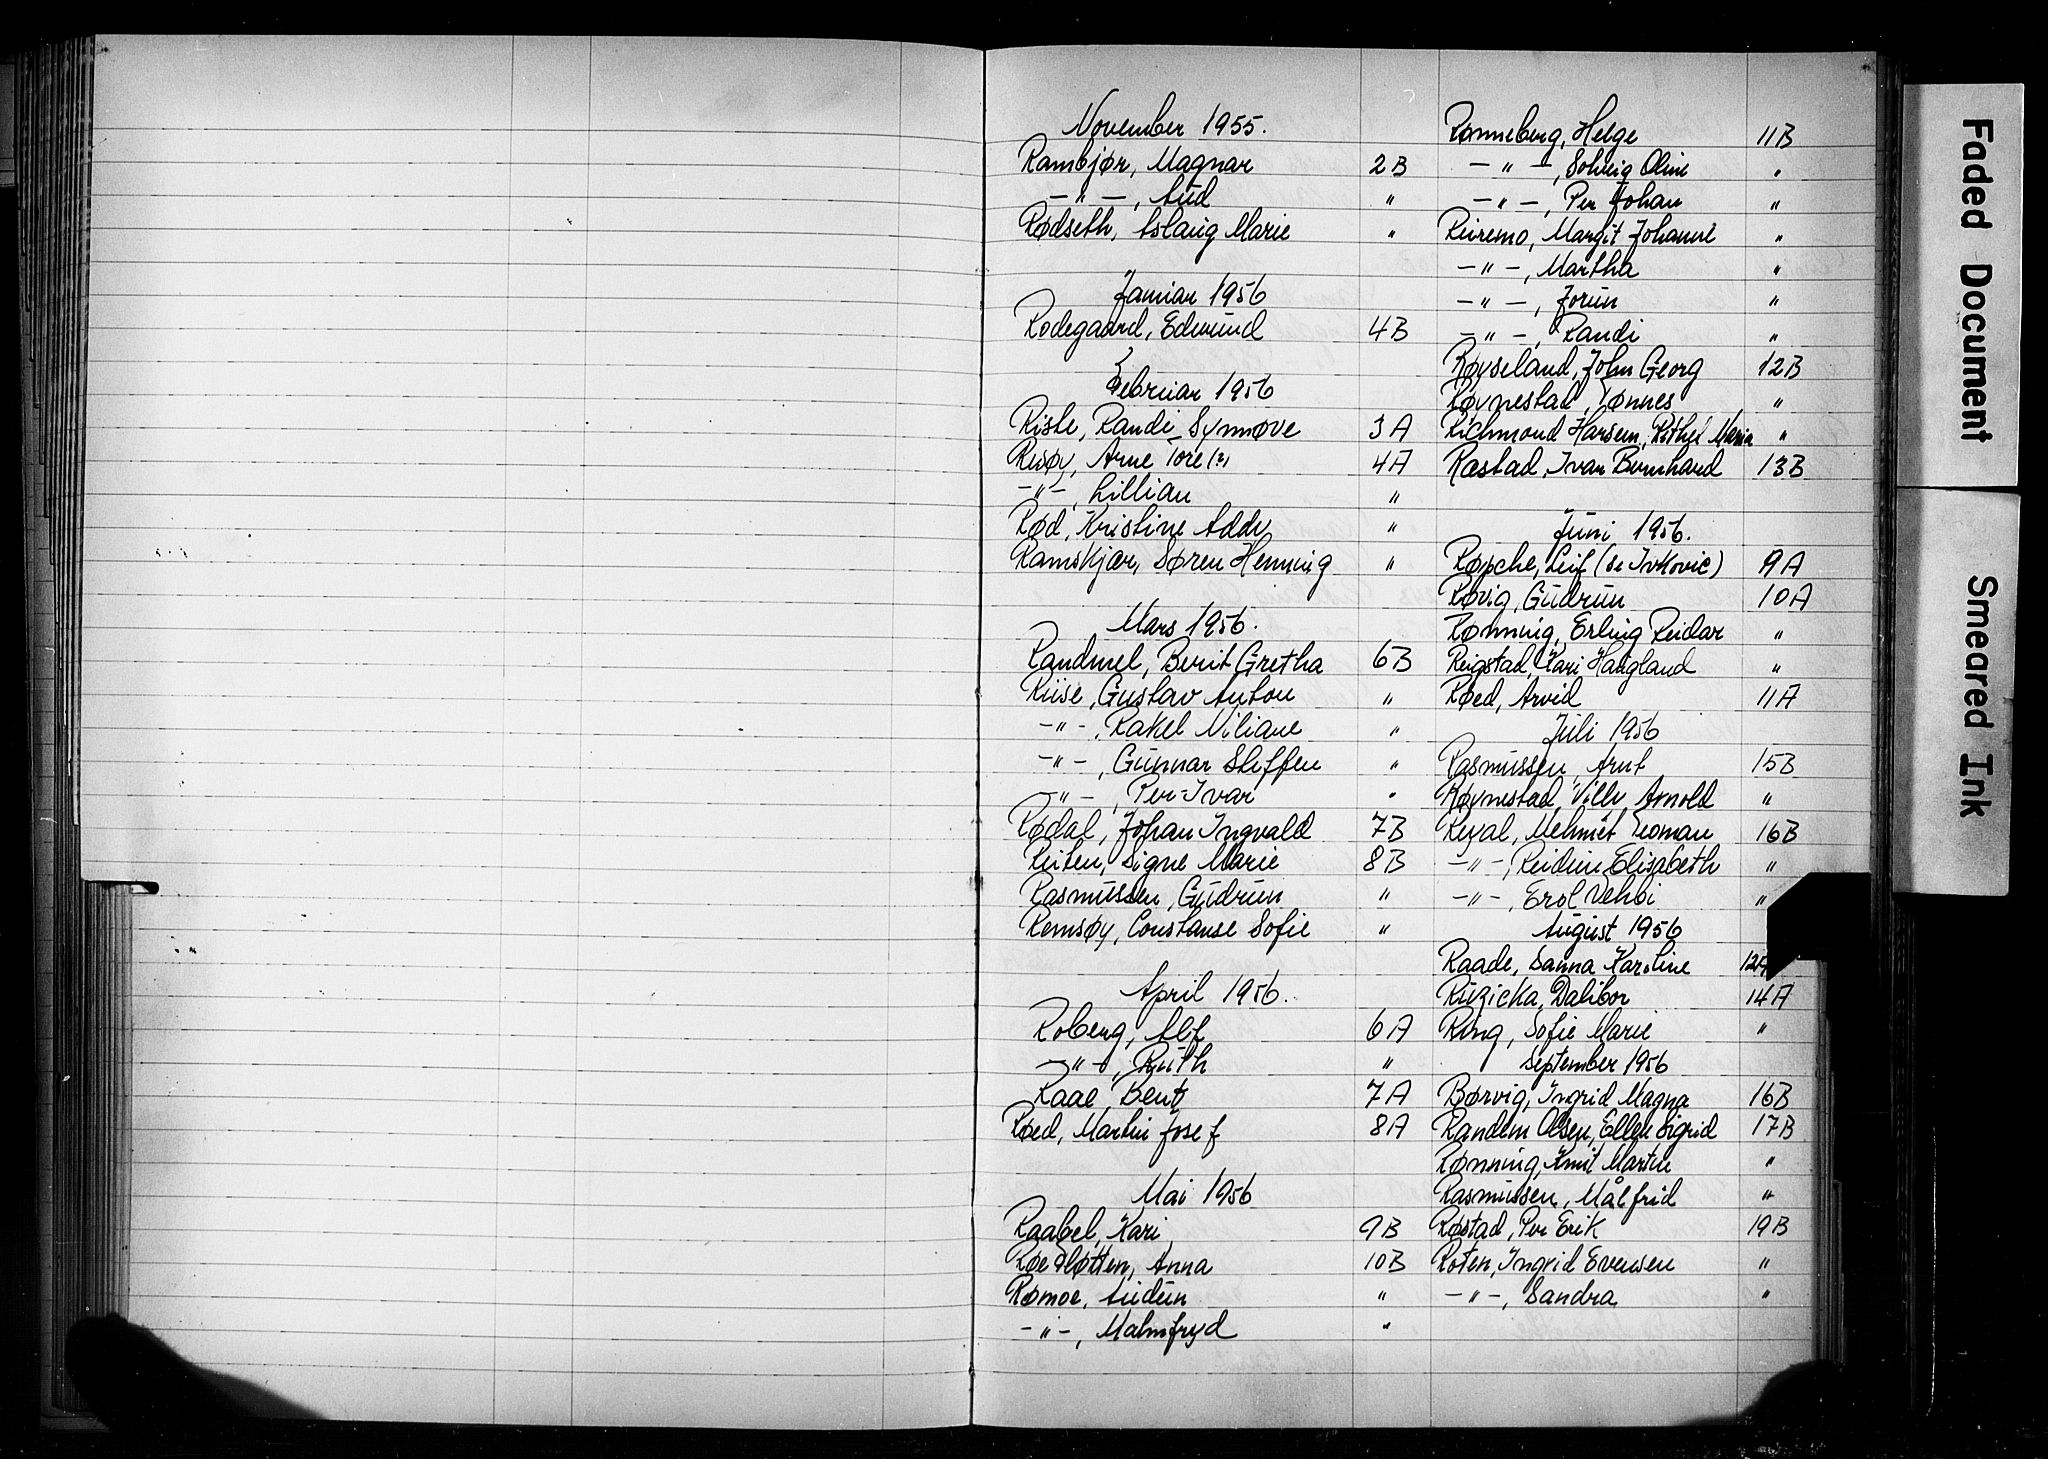 November 1955.
Rambjør, Magnar 2B
— " —, Aud "
Rødseth, Aslaug Marie "
Januar 1956
Rodegaard, Edmund 4B
Februar 1956
Riste, Randi Synnøve 3A
Risøy, Arne Tore (2) 4A
— " —, Lillian "
Rød, Kristine Addy "
Ramskjær, Søren Henning "
Mars 1956.
Randmel, Berit Gretha 6B
Riise, Gustav Anton "
— " —, Rakel Viliane "
— " —, Gunnar Steffen "
— " —, Per-Ivar "
Rødal, Johan Ingvald 7B
Reiten, Signe Marie 8B
Rasmussen, Gudrun "
Remsøy, Constanse Sofie "
April 1956.
Roberg, Alf 6A
— " —, Ruth "
Raae Bent 7A
Røed, Martin Josef 8A
Mai 1956
Raabel, Kari 9B
Røe Fløtten, Anna 10B
Rømoe, Audun "
— " —, Malmfryd "
Rønneberg, Helge 11B
— " —, Solveig Oline "
— " —, Per Johan "
Reiremo, Margit Johanne "
— " —, Martha "
— " —, Jorun "
— " —, Randi "
Røyseland, John Georg 12B
Røynestad, Tønnes "
Richmond Harsem, Rethel Maria "
Rastad, Ivar Bernhard 13B
Juni 1956.
Røpcke, Leif (de Ivkovic) 9A
Røvig, Gudrun 10A
Rønning, Erling Reidar "
Reigstad, Kari Haugland "
Røed, Arvid 11A
Juli 1956
Rasmussen, Arnt 15B
Røynestad, Villy Arnold "
Reyal, Mehmet Teoman 16B
— " —, Reidun Elisabeth "
— " —, Erol Vehbi "
August 1956
Raade, Sanna Karoline 12A
Ruzicka, Dalibor 14A
Ring, Sofie Marie "
September 1956
Børvig, Ingrid Magna 16B
Randem Olsen, Ellen Sigrid 17B
Rønning, Knut Martin "
Rasmussen, Målfrid "
Røstad, Per Erik 19B
Roten, Ingrid Evensen "
— " —, Sandra "
Faded Document
Smeared Ink